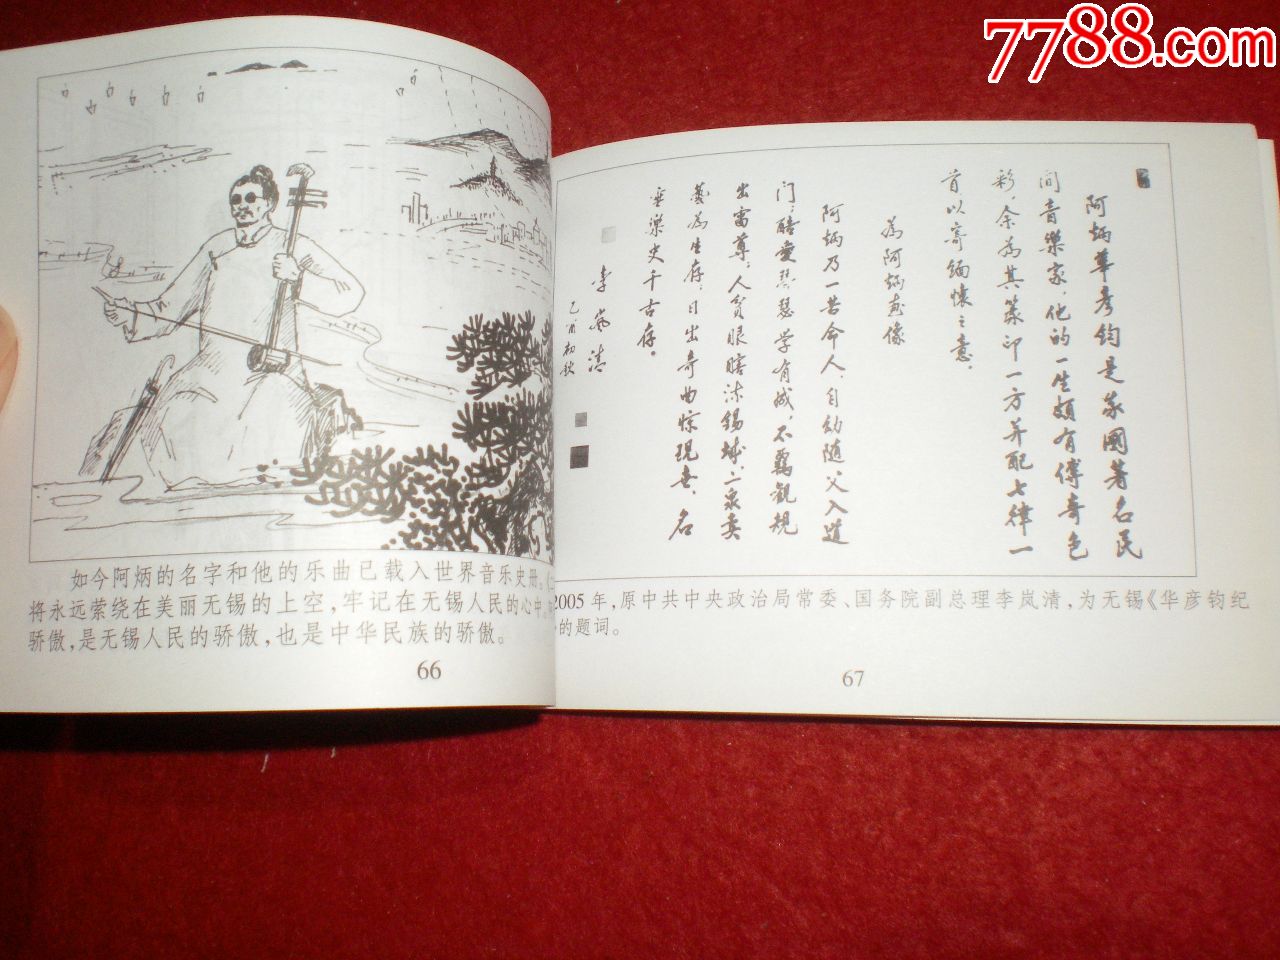 7788.com
如今阿炳的名字和他的乐曲已载入世界音乐史册。
将永远萦绕在美丽无锡的上空,牢记在无锡人民的心中
骄傲,是无锡人民的骄傲,也是中华民族的骄傲。
66
阿炳华彦钧是我國著名民
间音樂家,他的一生頗有傳奇色
彩,余為其篆印一方并配七律一
首以寄缅懷之意。
為阿炳画像
阿炳乃一苦命人,自幼随父入道
门,酷愛琴瑟学有成,不羁觀規
出雷尊。人贫眼瞎沫锡城,二泉賣
藝為生存,日出奇曲惊現世,名
垂樂史千古存。
李岚清
乙酉初秋
2005年,原中共中央政治局常委、国务院副总理李岚清,为无锡《华彦钧纪
的题词。
67